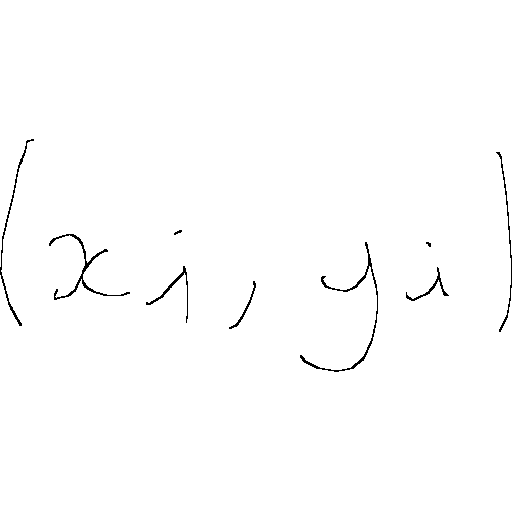 (xi, yi)